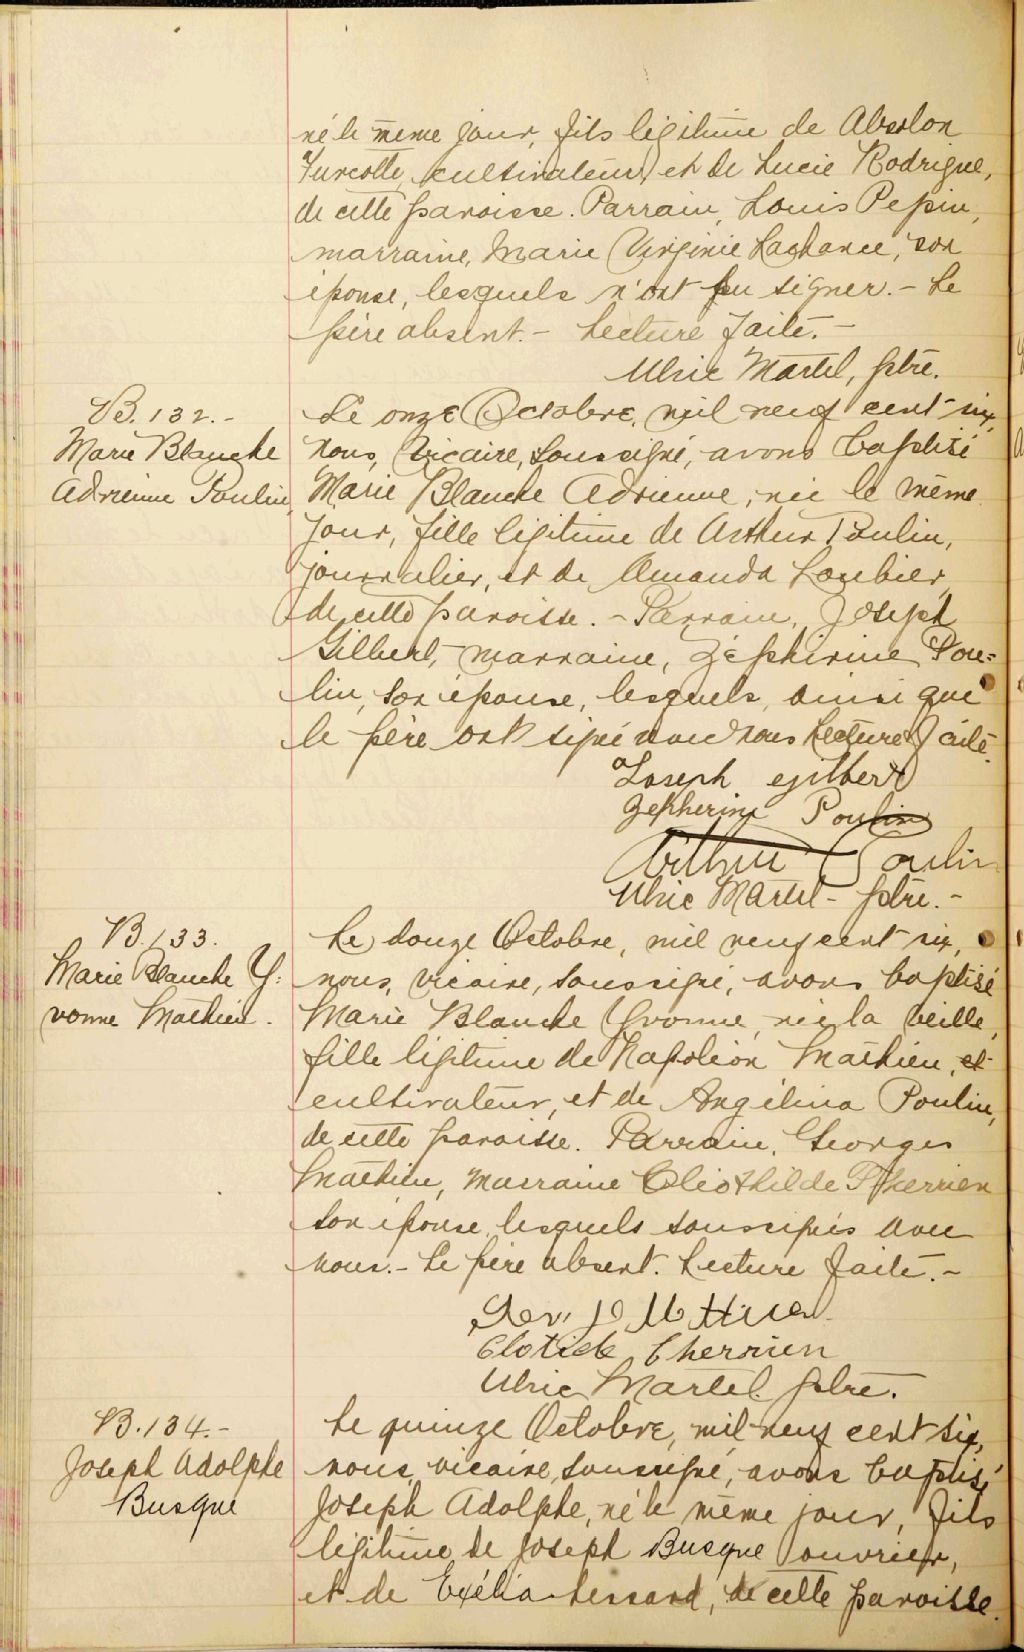 né le même jour, fils légitime de Absolon
Turcotte, cultivateur, et de Lucie Rodrigue,
de cette paroisse. Parrain, Louis Pepin,
marraine, Marie Virginie Lachance, son
épouse, lesquels n'ont pu signer. - Le
père absent. - Lecture faite. -
Ulric Martel, ptre.
B. 132. -
Marie Blanche
Adrienne Poulin
Le onze Octobre, mil neuf cent six,
nous, vicaire, soussigné, avons baptisé
Marie Blanche Adrienne, née le même
jour, fille légitime de Arthur Poulin,
journalier, et de Amanda Loubier,
de cette paroisse. - Parrain, Joseph
Gilbert, marraine, Zéphirine Pou=
lin, son épouse, lesquels, ainsi que
le père ont signé avec nous Lecture faite.
Joseph Gilbert
Zepherine Poulin
Arthur Poulin
Ulric Martel - ptre. -
B. 133.
Marie Blanche Y=
vonne Mathieu.
Le douze Octobre, mil neuf cent six,
nous, vicaire, soussigné, avons baptisé
Marie Blanche Yvonne, née la veille,
fille légitime de Napoléon Mathieu, et
cultivateur, et de Angélina Poulin,
de cette paroisse. Parrain, Georges
Mathieu, marraine Cléothilde Therrien
son épouse, lesquels soussignés avec
nous. - Le père absent. Lecture faite. -
Clotide Therrien
Ulric Martel. ptre.
B. 134. -
Joseph Adolphe
Busque
Le quinze Octobre, mil neuf cent six,
nous, vicaire, soussigné, avons baptisé
Joseph Adolphe, né le même jour, fils
légitime de Joseph Busque ouvrier,
et de Exélia Lessard, de cette paroisse.